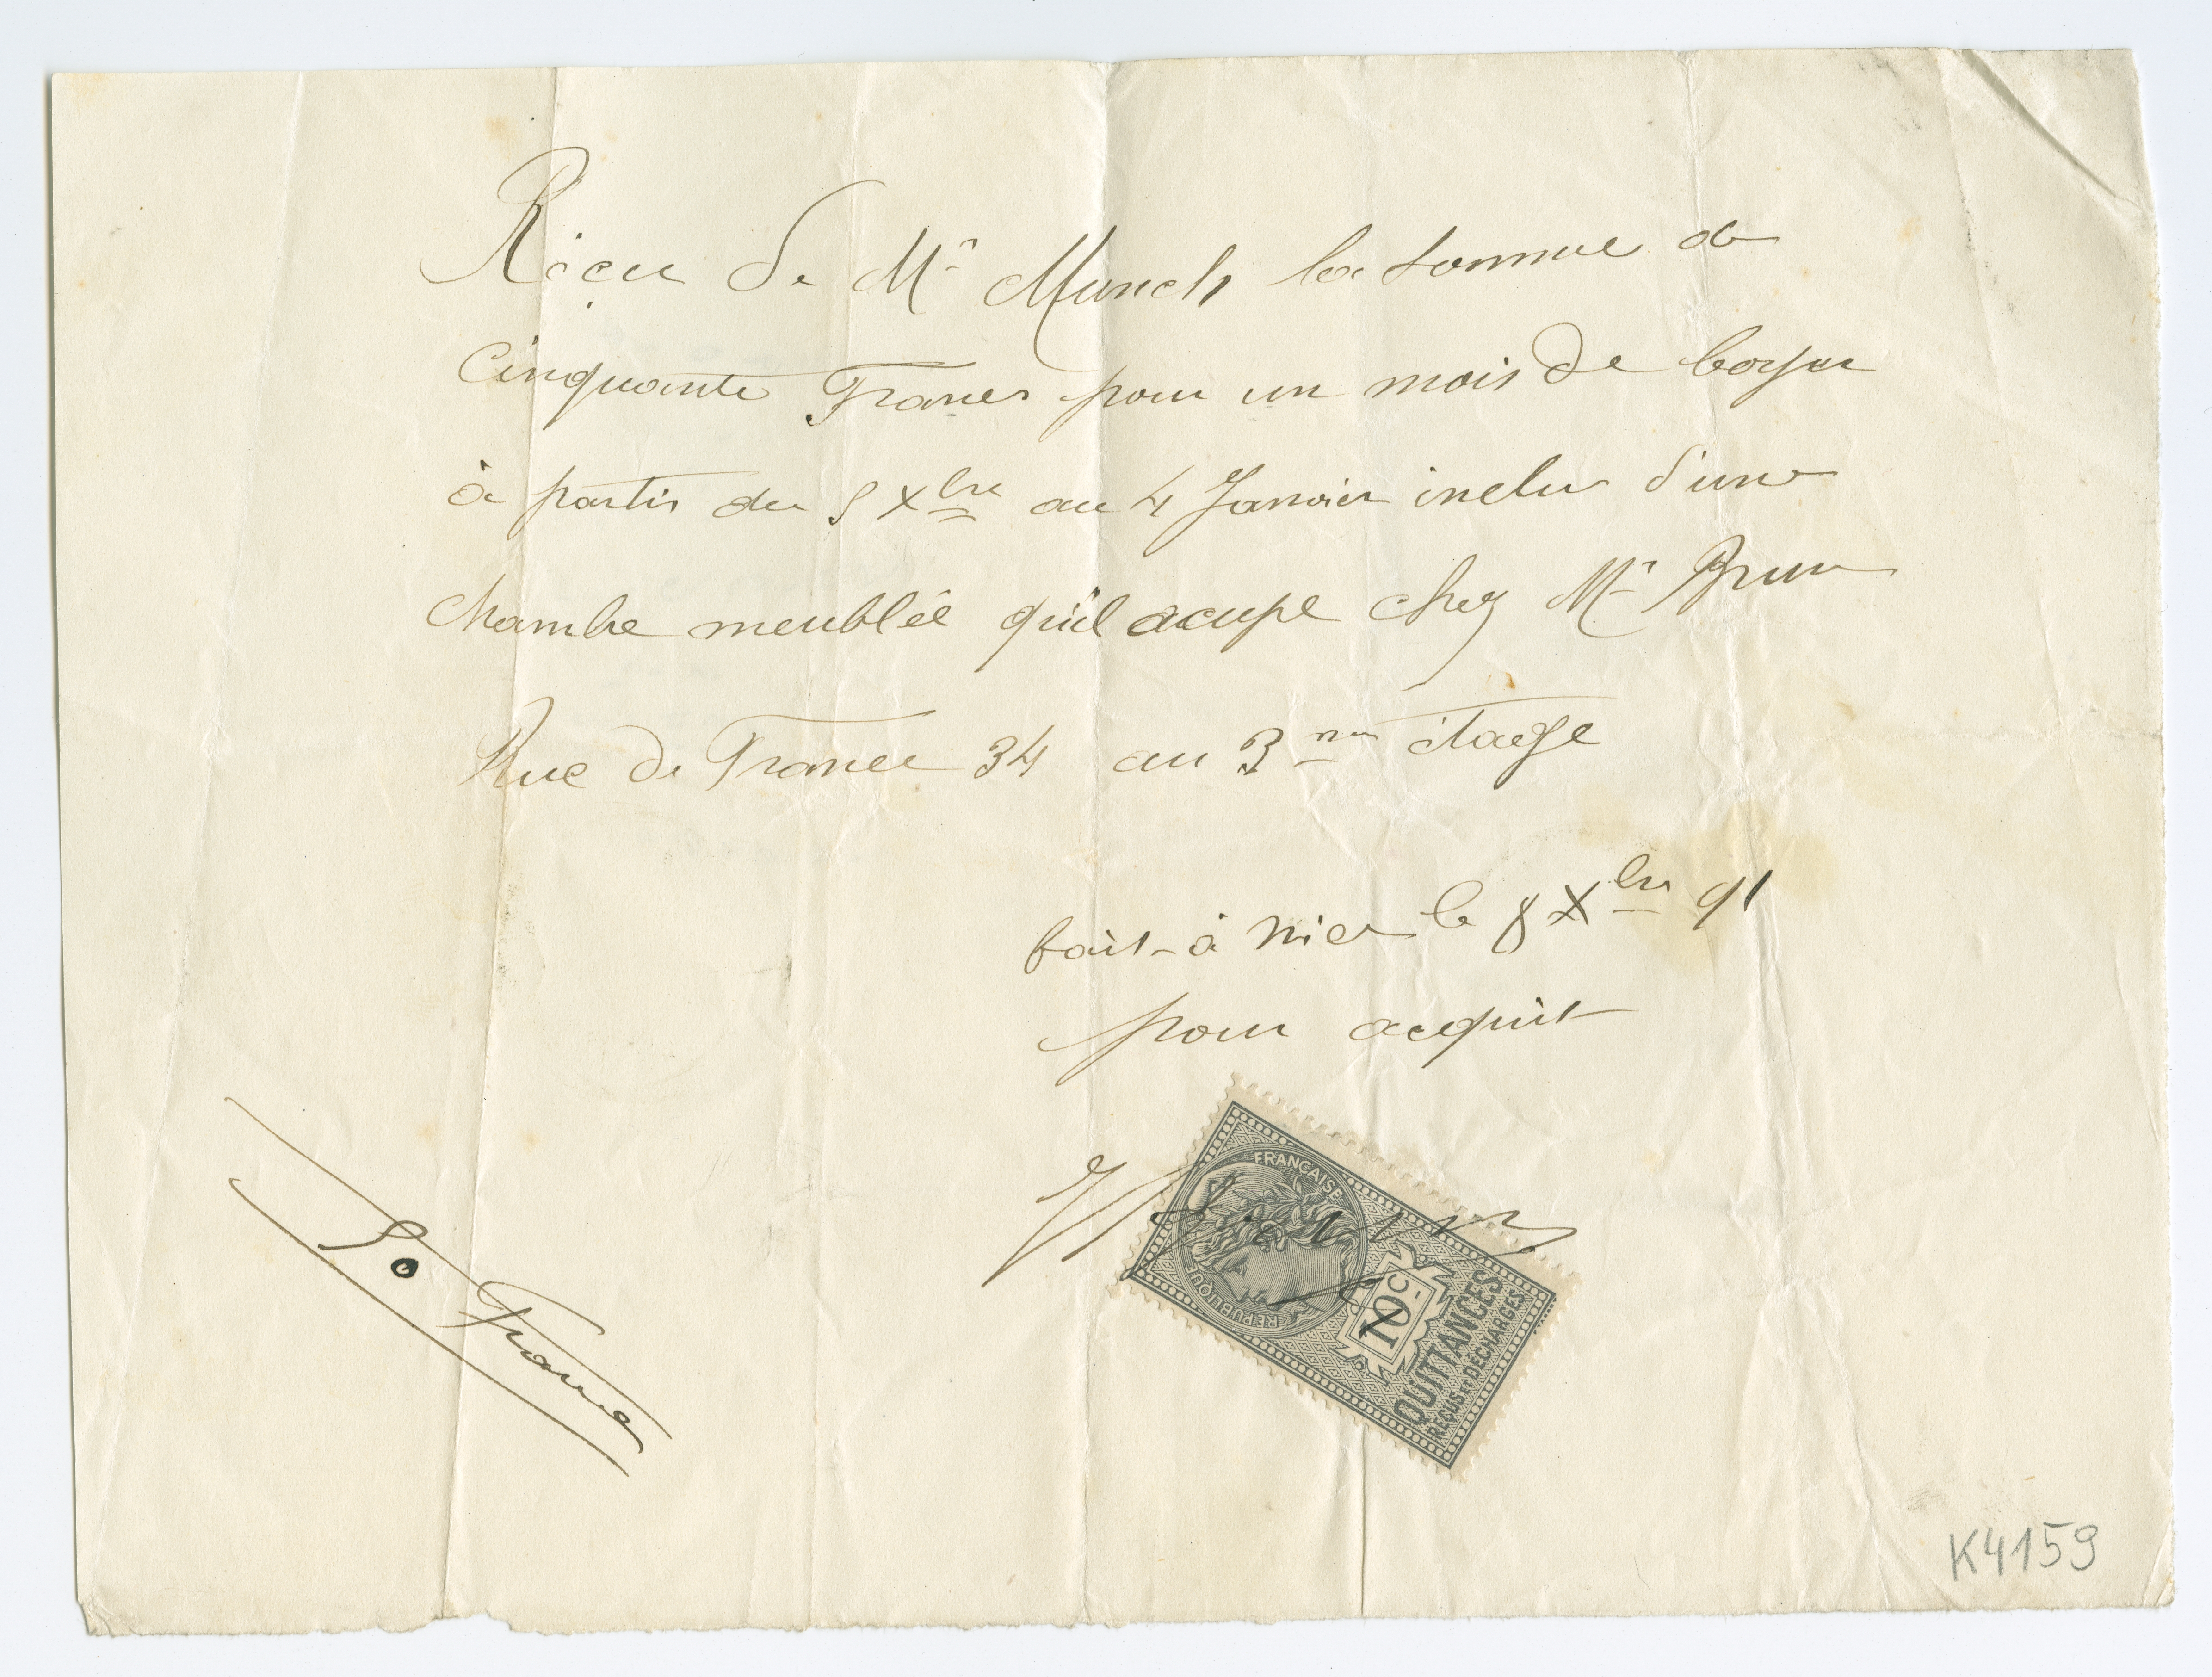 Récu de Mr Munch la somme de
Cinquante Francs pour un mois de loyer
à partir du 5 Xbre au 4 Janvier inclus d'une
chambre meublée qu'il acupe chez Mr Brun
Rue de France 34 au 3me étage
fait à Nice le 8 Xbre 91
pour acquit
RÉPUBLIQUE FRANÇAISE
10c
QUITTANCES
REÇUS ET DÉCHARGES
50 Francs
K4159